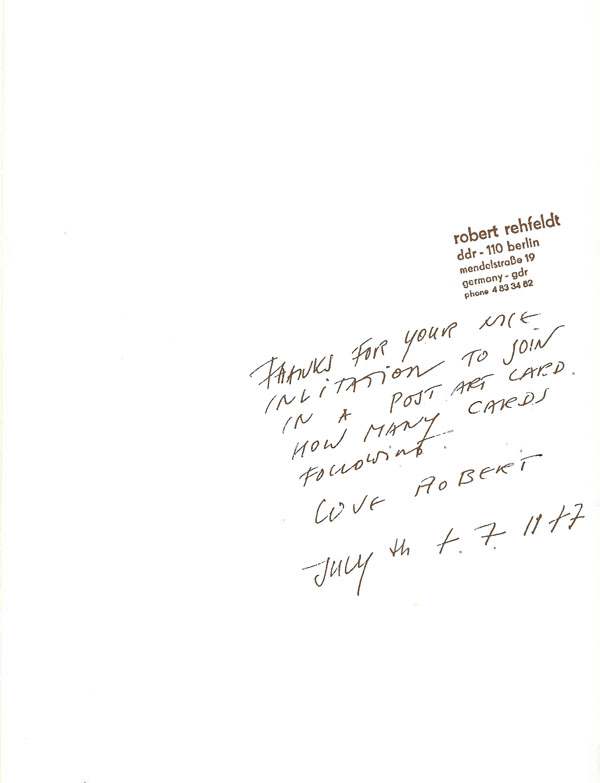 robert rehfeldt
ddr - 110 berlin
mendelstraße 19
germany - gdr
phone 4 83 34 82
THANKS FOR YOUR NICE
INLITATION TO JOIN
IN A POST ART CARD.
HOW MANY CARDS
FOLLOWING
LOVE ROBERT
JULY th 7.